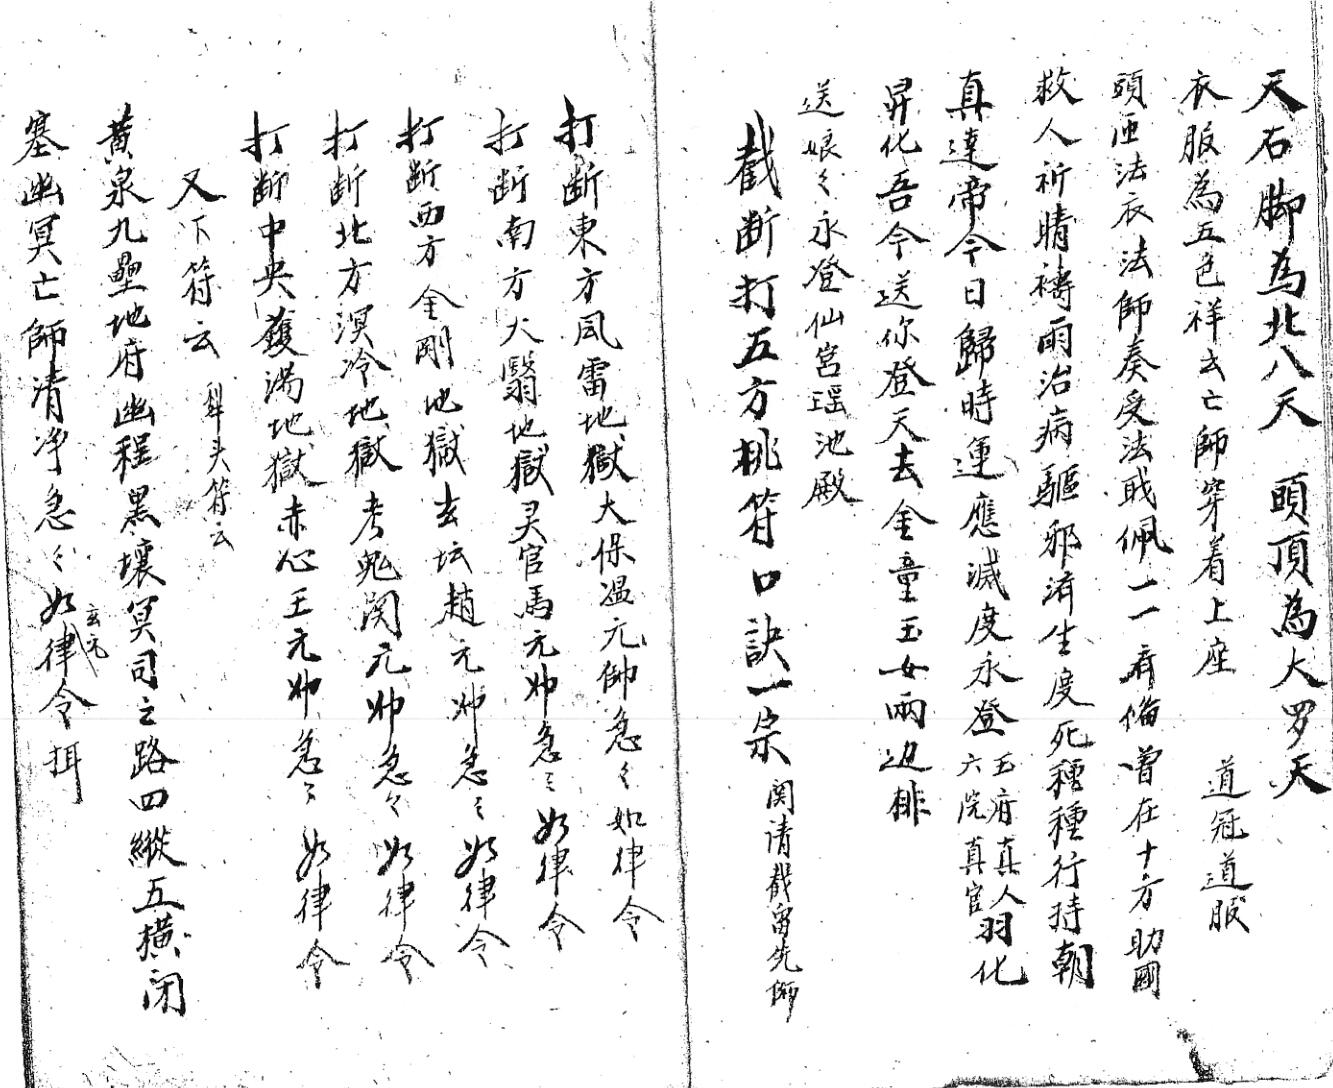 天右脚為北八天　頭頂為大罗天
衣服為五色祥云亡師穿着上座　道冠道服
頭匝法衣法師奏受法戝佩一一斉俻曽在十方助國
救人祈晴禱雨治病驅邪濟生度死種種行持朝
真達帝今日歸時運應滅度永登玉府真人六院真官羽化
昇化吾今送你登天去金童玉女兩边排
送娘々永登仙宮瑶池殿
截断打五方桃符口訣一宗　関請截留先師
打断東方風雷地獄大保溫元帥急々如律令
打断南方火翳地獄灵官馬元帅急々如律令
打断西方金剛地獄玄坛趙元帅急々如律令
打断北方溟冷地獄考鬼関元帅急々如律令
打断中央鑊湯地獄赤心王元帅急々如律令
又下符云　斗头符云
黄泉九壘地府幽程黑壤冥司之路四縱五横闭
塞幽冥亡師清净急々如律令　玄元